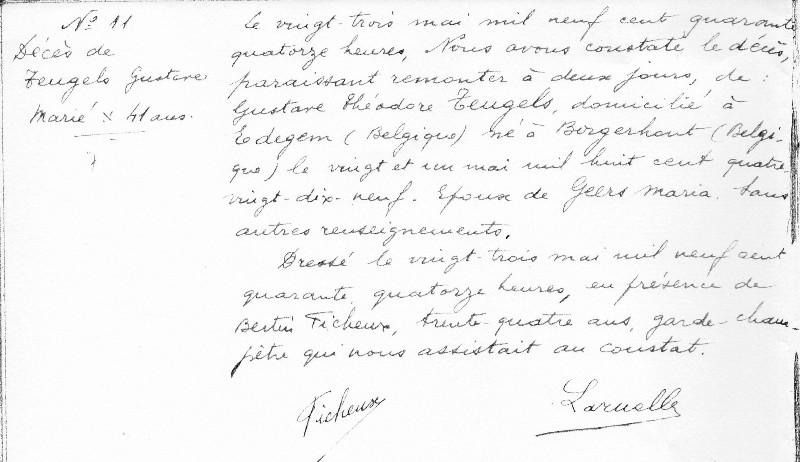 No 11
Décès de
Teugels Gustave
Marié x 41 ans.
Le vingt-trois mai mil neuf cent quarante
quatorze heures, Nous avons constaté le décès,
paraissant remonter à deux jours, de :
Gustave Théodore Teugels, domicilié à
Edegem (Belgique) né à Borgerhout (Belgi-
que) le vingt et un mai mil huit cent quatre-
vingt-dix-neuf. Epoux de Geers Maria. Sans
autres renseignements.
Dressé le vingt-trois mai mil neuf cent
quarante, quatorze heures, en présence de
Bertin Ficheux, trente-quatre ans, garde-cham-
pêtre qui nous assistait au constat.
Ficheux
Laruelle